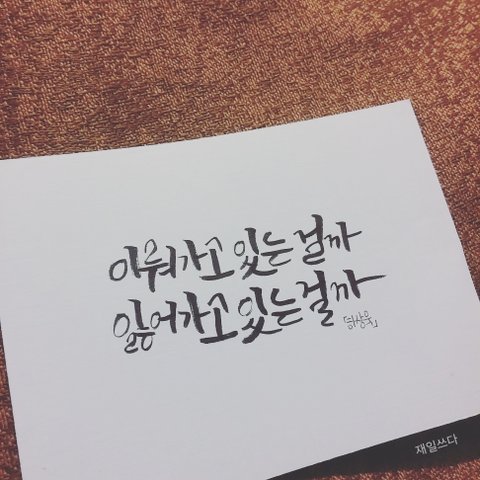 이뤄가고 있는 걸까
잃어가고 있는 걸까
「하상욱」
재일쓰다